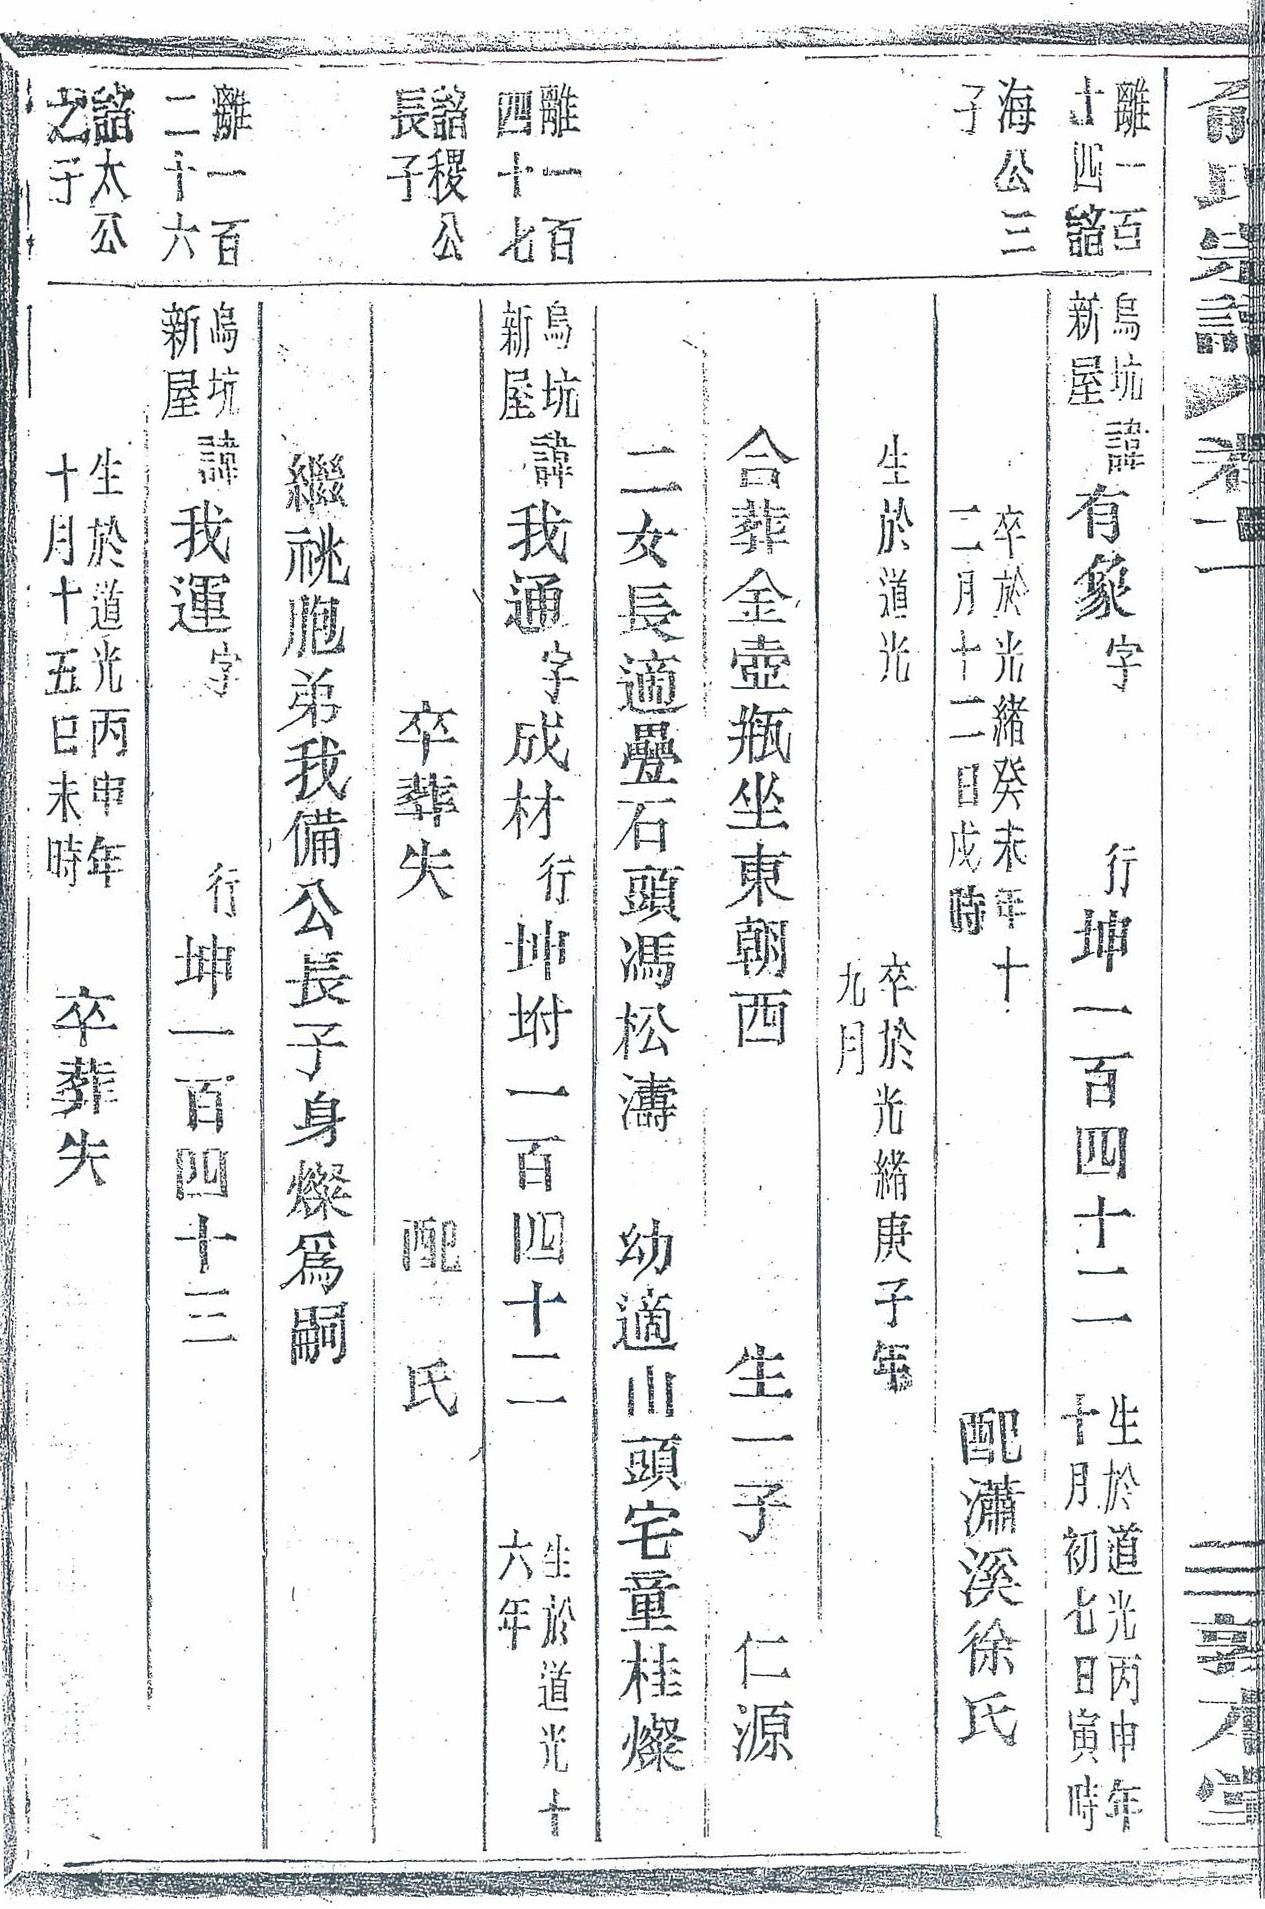 俞氏宗譜 卷二 三 敦本堂
離一百十四諮海公三子
烏坑新屋諱有象字 行坤一百四十二 生於道光丙申年十月初七日寅時
卒於光緒癸未年十二月十二日戌時 配瀟溪徐氏
生於道光 卒於光緒庚子年九月
合葬金壺瓶坐東朝西 生一子 仁源
二女長適疊石頭馮松濤 幼適山頭宅童桂燦
離一百四十七諮稷公長子
烏坑新屋諱我通字成材行坤坿一百四十二 生於道光十六年
卒葬失 配 氏
繼祧胞弟我備公長子身燦爲嗣
離一百二十六諮太公之子
烏坑新屋諱我運字 行坤一百四十三
生於道光丙申年十月十五日未時 卒葬失